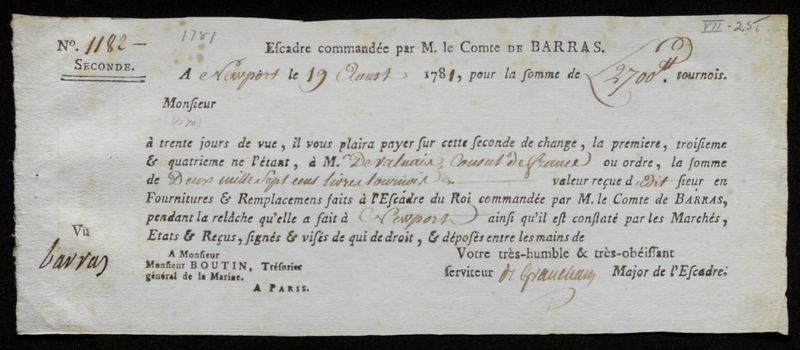 1781
VII - 25
Nº. 1182 -
SECONDE.
Eſcadre commandée par M. le Comte DE BARRAS.
A Newport le 19 Aoust 1781, pour la ſomme de L 2700 tt tournois.
Monſieur
à trente jours de vue, il vous plaira payer ſur cette ſeconde de change, la premiere, troiſieme
& quatrieme ne l'étant, à M.r De valnais, Consul de france ou ordre, la ſomme
de Deux mille Sept cens livres tournois valeur reçue d Edit ſieur en
Fournitures & Remplacemens faits à l'Eſcadre du Roi commandée par M. le Comte DE BARRAS,
pendant la relâche qu'elle a fait à Newport ainſi qu'il eſt conſtaté par les Marchés,
Etats & Reçus, ſignés & viſés de qui de droit, & dépoſés entre les mains de
Vû
barras
A Monſieur
Monſieur BOUTIN, Tréſorier
général de la Marine.
A PARIS.
Votre très-humble & très-obéiſſant
ſerviteur de Granchain Major de l'Eſcadre.